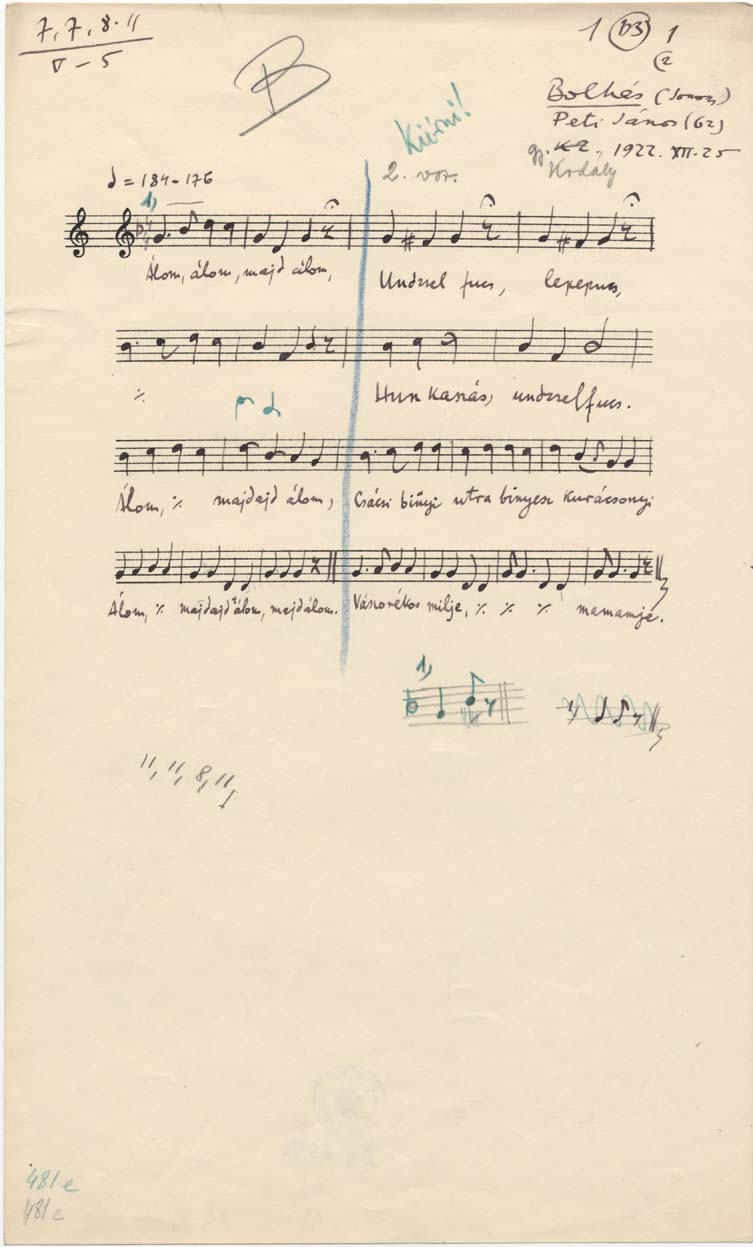 7, 7, 8, 11
V – 5
1 (b3) 1
(2
B
Kiírni!
Bolhás (Somogy)
Peti János (62)
gy. KZ, 1922. XII. 25
Kodály
2. vsz.
= 184–176
1)
Álom, álom, majd álom,
Undzsel fucs,
Hunkaszás, undzselfucs.
Álom, ٪ majdajd álom,
Csácsi binyi utra binyesz kurácsonyi
Álom, ٪ majdajd álom, majdálom.
Vászorékos milje, ٪ ٪ ٪ mamamje.
1)
11, 11, 8, 11
481 e
481 e